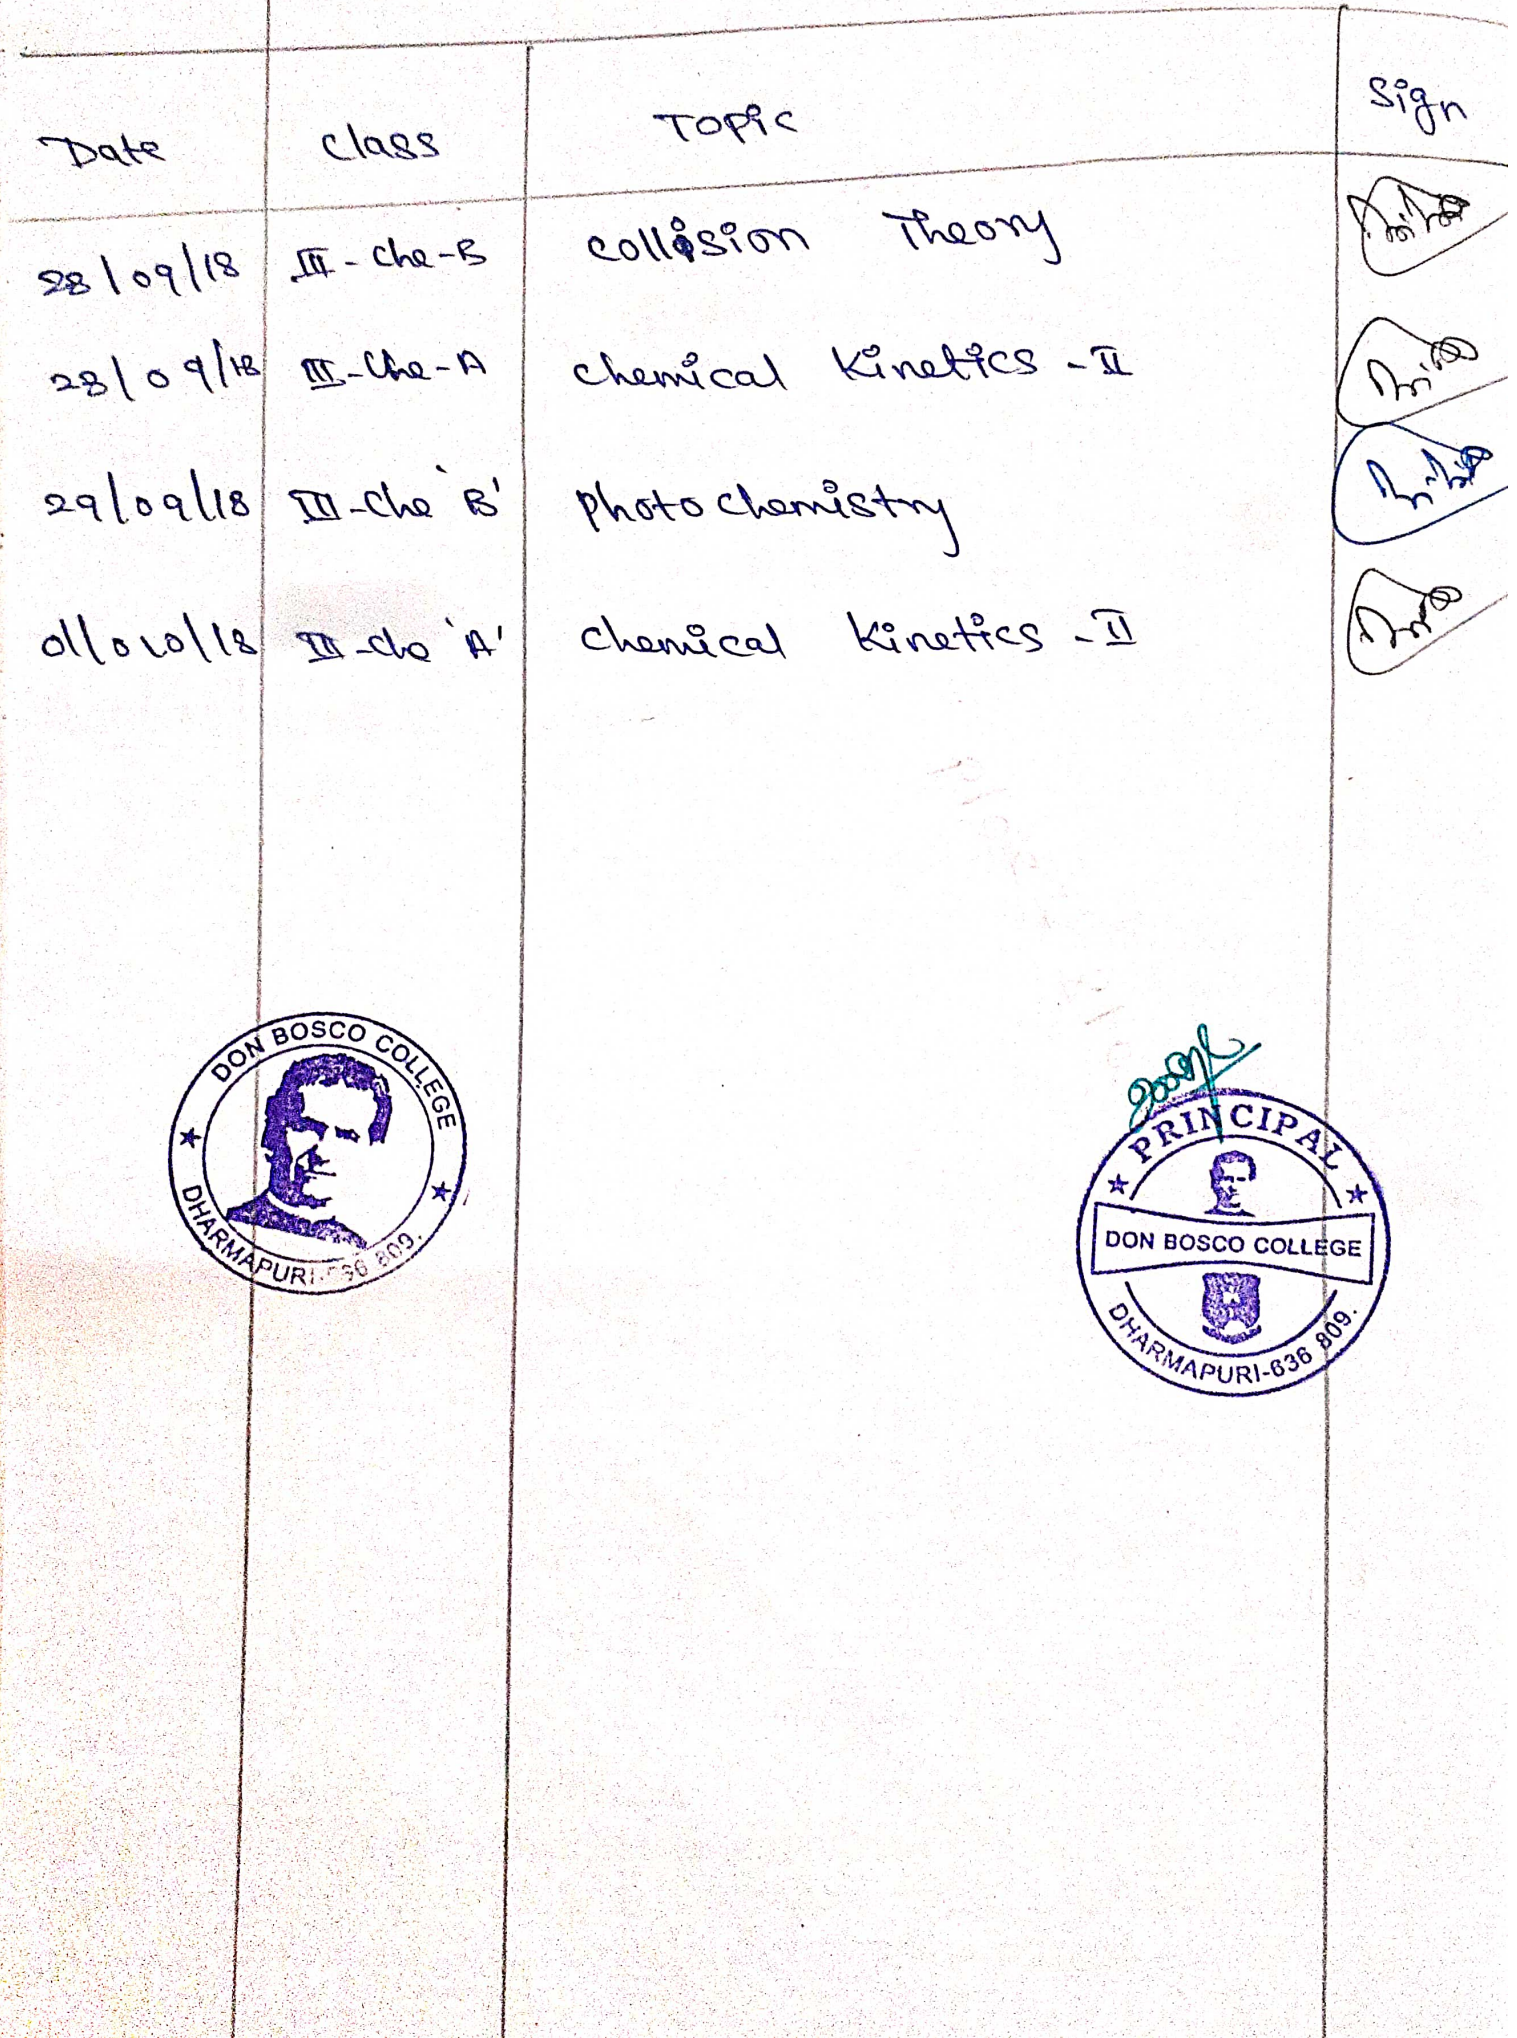 Date Class Topic Sign
28/09/18 III - Che - B Collision Theory
28/09/18 III - Che - A Chemical Kinetics - II
29/09/18 III - Che 'B' Photo chemistry
01/010/18 III - Che 'A' Chemical Kinetics - II
DON BOSCO COLLEGE
DHARMAPURI-636 809.
PRINCIPAL
DON BOSCO COLLEGE
DHARMAPURI-636 809.